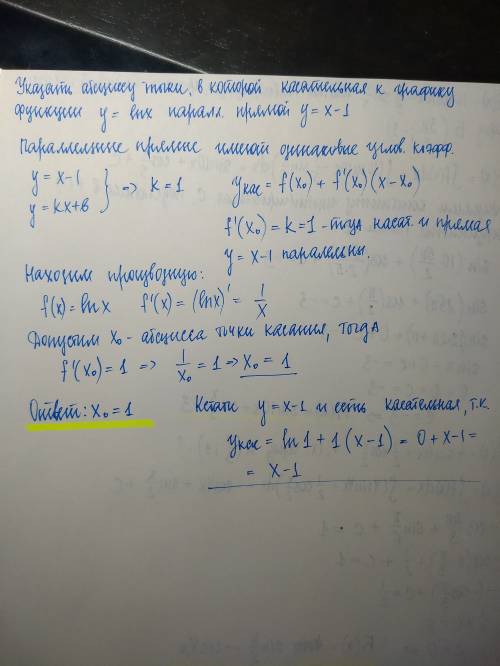 Указати абсцису точки, в которой касательная к графику
функции y = lnx паралл. прямой y = x-1
Параллельные прямые имеют одинаковые углов. коэфф.
y = x-1
y = kx+b } => k = 1
yкас = f(x₀) + f'(x₀)(x-x₀)
f'(x₀) = k = 1 - тогда касат. и прямая
y = x-1 паралельны.
Находим производную:
f(x) = lnx f'(x) = (lnx)' = 1/x
Допустим x₀ - абсцисса точки касания, тогда
f'(x₀) = 1 => 1/x₀ = 1 => x₀ = 1
Ответ: x₀ = 1
Кстати y = x-1 и есть касательная, т.к.
yкас = ln1 + 1(x-1) = 0 + x-1 =
= x-1